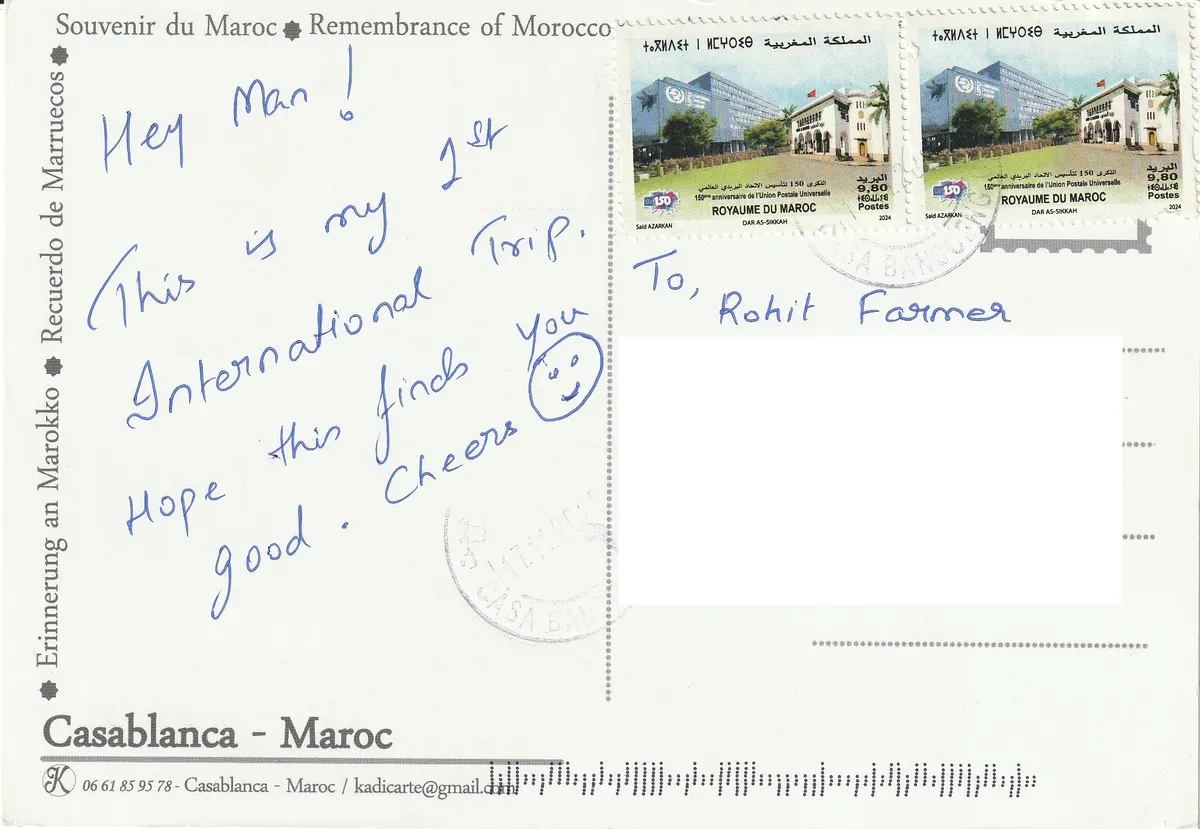 Souvenir du Maroc Remembrance of Morocco
Erinnerung an Marokko Recuerdo de Marruecos
Hey Man!
This is my 1st
International Trip.
Hope this finds you
good. Cheers
ⵜⴰⴳⵍⴷⵉⵜ ⵏ ⵍⵎⵖⵔⵉⴱ المملكة المغربية
الذكرى 150 لتأسيس الاتحاد البريدي العالمي
150ème anniversaire de l'Union Postale Universelle
ROYAUME DU MAROC
DAR AS-SIKKAH
150
Said AZARKAN
البريد
9,80
Postes
2024
ⵜⴰⴳⵍⴷⵉⵜ ⵏ ⵍⵎⵖⵔⵉⴱ المملكة المغربية
الذكرى 150 لتأسيس الاتحاد البريدي العالمي
150ème anniversaire de l'Union Postale Universelle
ROYAUME DU MAROC
DAR AS-SIKKAH
150
Said AZARKAN
البريد
9,80
Postes
2024
To,
Rohit Farmer
CASA
Casablanca - Maroc
K 06 61 85 95 78 - Casablanca - Maroc / kadicarte@gmail.com